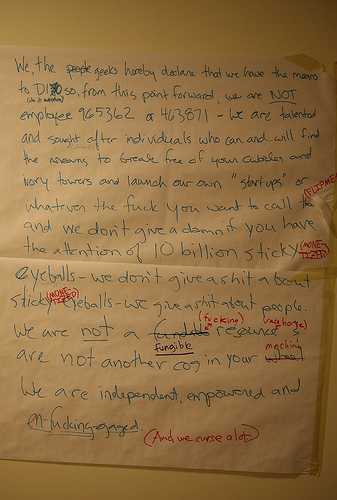 We, the people geeks hereby declare that we have the means
to DIY so, from this point forward, we are NOT
(do it ourselves)
employee 965362 or 463871 - we are talented
and sought after individuals who can and will find
the means to break free of your cubicles and
ivory towers and launch our own "startups" or
(FLIPME)
whatever the fuck you want to call
and we don't give a damn if you have
the attention of 10 billion sticky (MONETIZED)
eyeballs - we don't give a shit about
sticky (MONETIZED) eyeballs - we give a shit about people.
(fucking) (racehorse)
We are not a resource
fungible
are not another cog in your meching wheel
We are independent, empowered and
en-fucking-gaged.
(And we curse a lot)